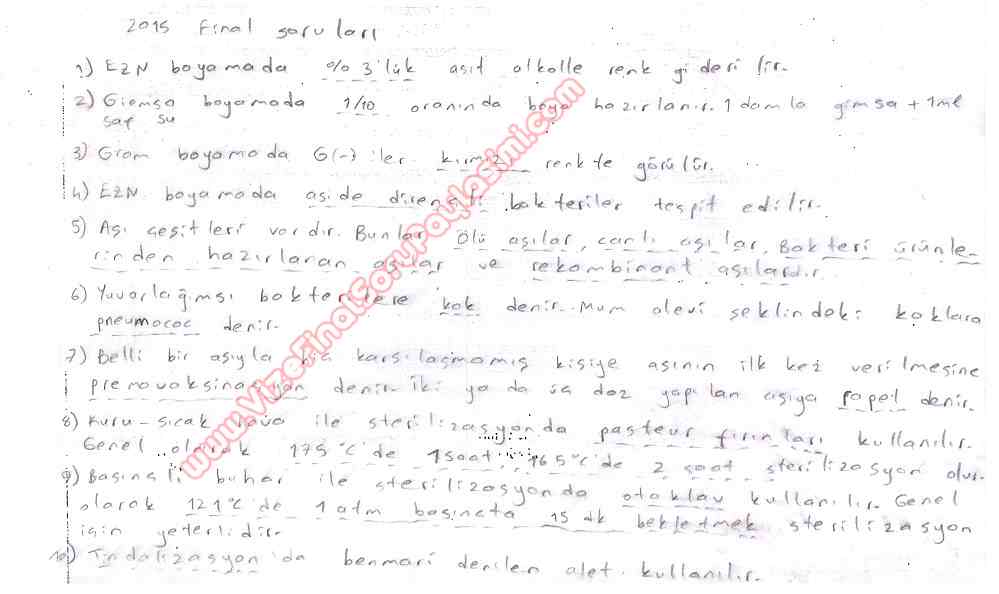 2015 Final soruları
1) EZN boyamada %3'lük asit alkolle renk giderilir.
2) Giemsa boyamada 1/10 oranında boya hazırlanır. 1 damla gimsa + 1ml
saf su
3) Gram boyamada G(-)'ler kırmızı renkte görülür.
4) EZN boyamada aside dirençli bakteriler tespit edilir.
5) Aşı çeşitleri vardır. Bunlar Ölü aşılar, canlı aşılar, Bakteri ürünle-
rinden hazırlanan aşılar ve rekombinant aşılardır.
6) Yuvarlağımsı bakterilere kok denir. Mum alevi şeklindeki koklara
pneumococ denir.
7) Belli bir aşıyla hiç karşılaşmamış kişiye aşının ilk kez verilmesine
premovaksinasyon denir. İki ya da üç doz yapılan aşıya rapel denir.
8) Kuru-sıcak hava ile sterilizasyonda pasteur fırınları kullanılır.
Genel olarak 175°C'de 1 saat, 165°C'de 2 saat sterilizasyon olur.
9) Basınçlı buhar ile sterilizasyonda otoklav kullanılır. Genel
olarak 121°C'de 1 atm basınçta 15 dk bekletmek sterilizasyon
için yeterlidir.
10) Tindalizasyon'da benmari denilen alet kullanılır.
www.VizeFinalSoruPaylasimi.com